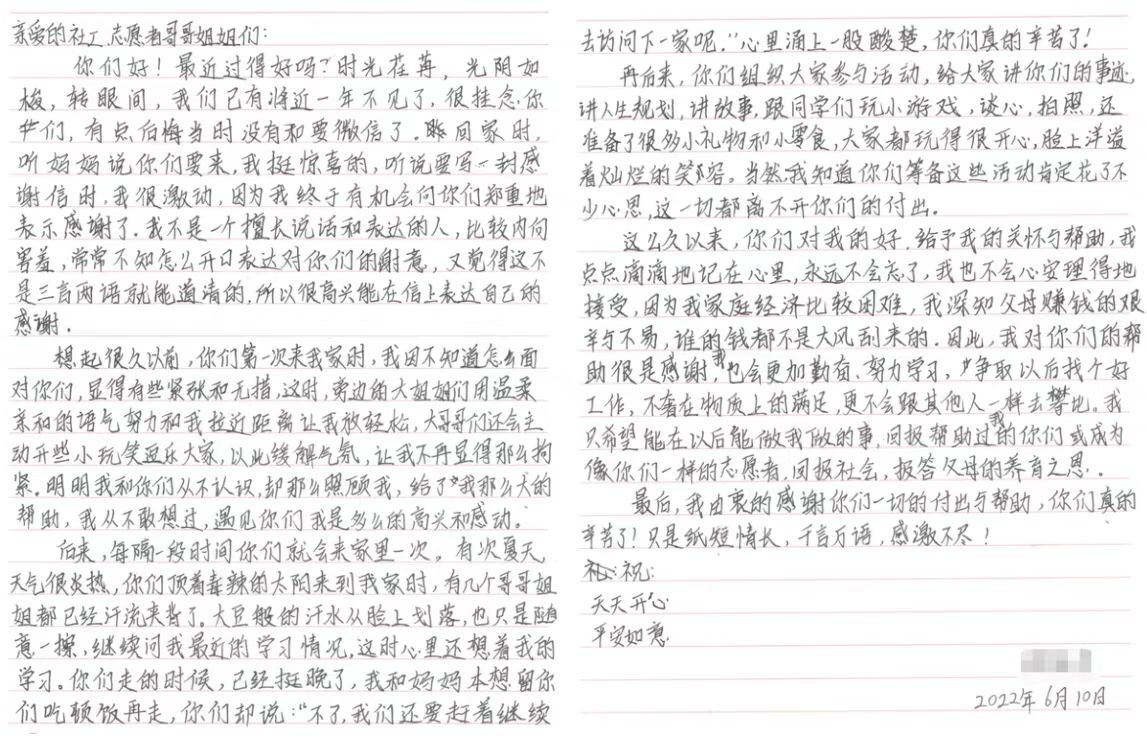 亲爱的社工、志愿者哥哥姐姐们：
你们好！最近过得好吗？时光荏苒，光阴如
梭，转眼间，我们已有将近一年不见了，很挂念你
们，有点后悔当时没有和要微信了。昨回家时，
听妈妈说你们要来，我挺惊喜的，听说要写一封感
谢信时，我很激动，因为我终于有机会向你们郑重地
表示感谢了。我不是一个擅长说话和表达的人，比较内向
害羞，常常不知怎么开口表达对你们的谢意，又觉得这不
是三言两语就能道清的，所以很高兴能在信上表达自己的
感谢。
想起很久以前，你们第一次来我家时，我因不知道怎么面
对你们，显得有些紧张和无措，这时，旁边的大姐姐们用温柔
亲和的语气努力和我拉近距离让我放轻松，大哥哥们还会主
动开些小玩笑逗乐大家，以此缓解气氛，让我不再显得那么拘
紧。明明我和你们从不认识，却那么照顾我，给了我那么大的
帮助，我从不敢想过，遇见你们我是多么的高兴和感动。
后来，每隔一段时间你们就会来家里一次。有次夏天，
天气很炎热，你们顶着毒辣的太阳来到我家时，有几个哥哥姐
姐都已经汗流夹背了。大豆般的汗水从脸上划落，也只是随
意一擦，继续问我最近的学习情况，这时心里还想着我的
学习。你们走的时候，已经挺晚了，我和妈妈本想留你
们吃顿饭再走，你们却说：“不了，我们还要赶着继续
去访问下一家呢。”心里涌上一股酸楚，你们真的辛苦了！
再后来，你们组织大家参与活动，给大家讲你们的事迹，
讲人生规划，讲故事，跟同学们玩小游戏，谈心，拍照，还
准备了很多小礼物和小零食，大家都玩得很开心，脸上洋溢
着灿烂的笑容。当然，我知道你们筹备这些活动肯定花了不
少心思，这一切都离不开你们的付出。
这么久以来，你们对我的好，给予我的关怀与帮助，我
点点滴滴地记在心里，永远不会忘了，我也不会心安理得地
接受，因为我家庭经济比较困难，我深知父母赚钱的艰
辛与不易，谁的钱都不是大风刮来的。因此，我对你们的帮
助很是感谢，我也会更加勤奋、努力学习，争取以后找个好
工作，不奢在物质上的满足，更不会跟其他人一样去攀比。我
只希望能在以后能做我做的事，回报帮助过我的你们或成为
像你们一样的志愿者，回报社会，报答父母的养育之恩。
最后，我由衷的感谢你们一切的付出与帮助，你们真的
辛苦了！只是纸短情长，千言万语，感激不尽！
祝：
天天开心
平安如意
2022年6月10日